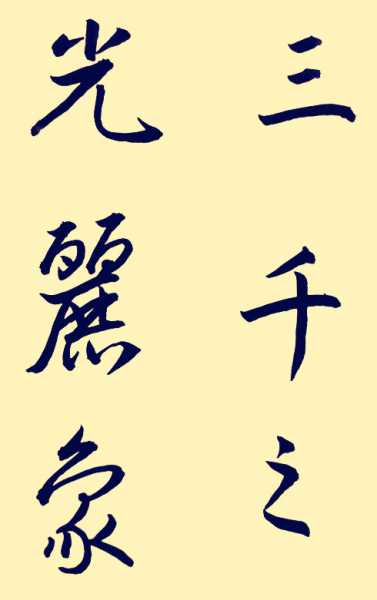 三千之
光麗象